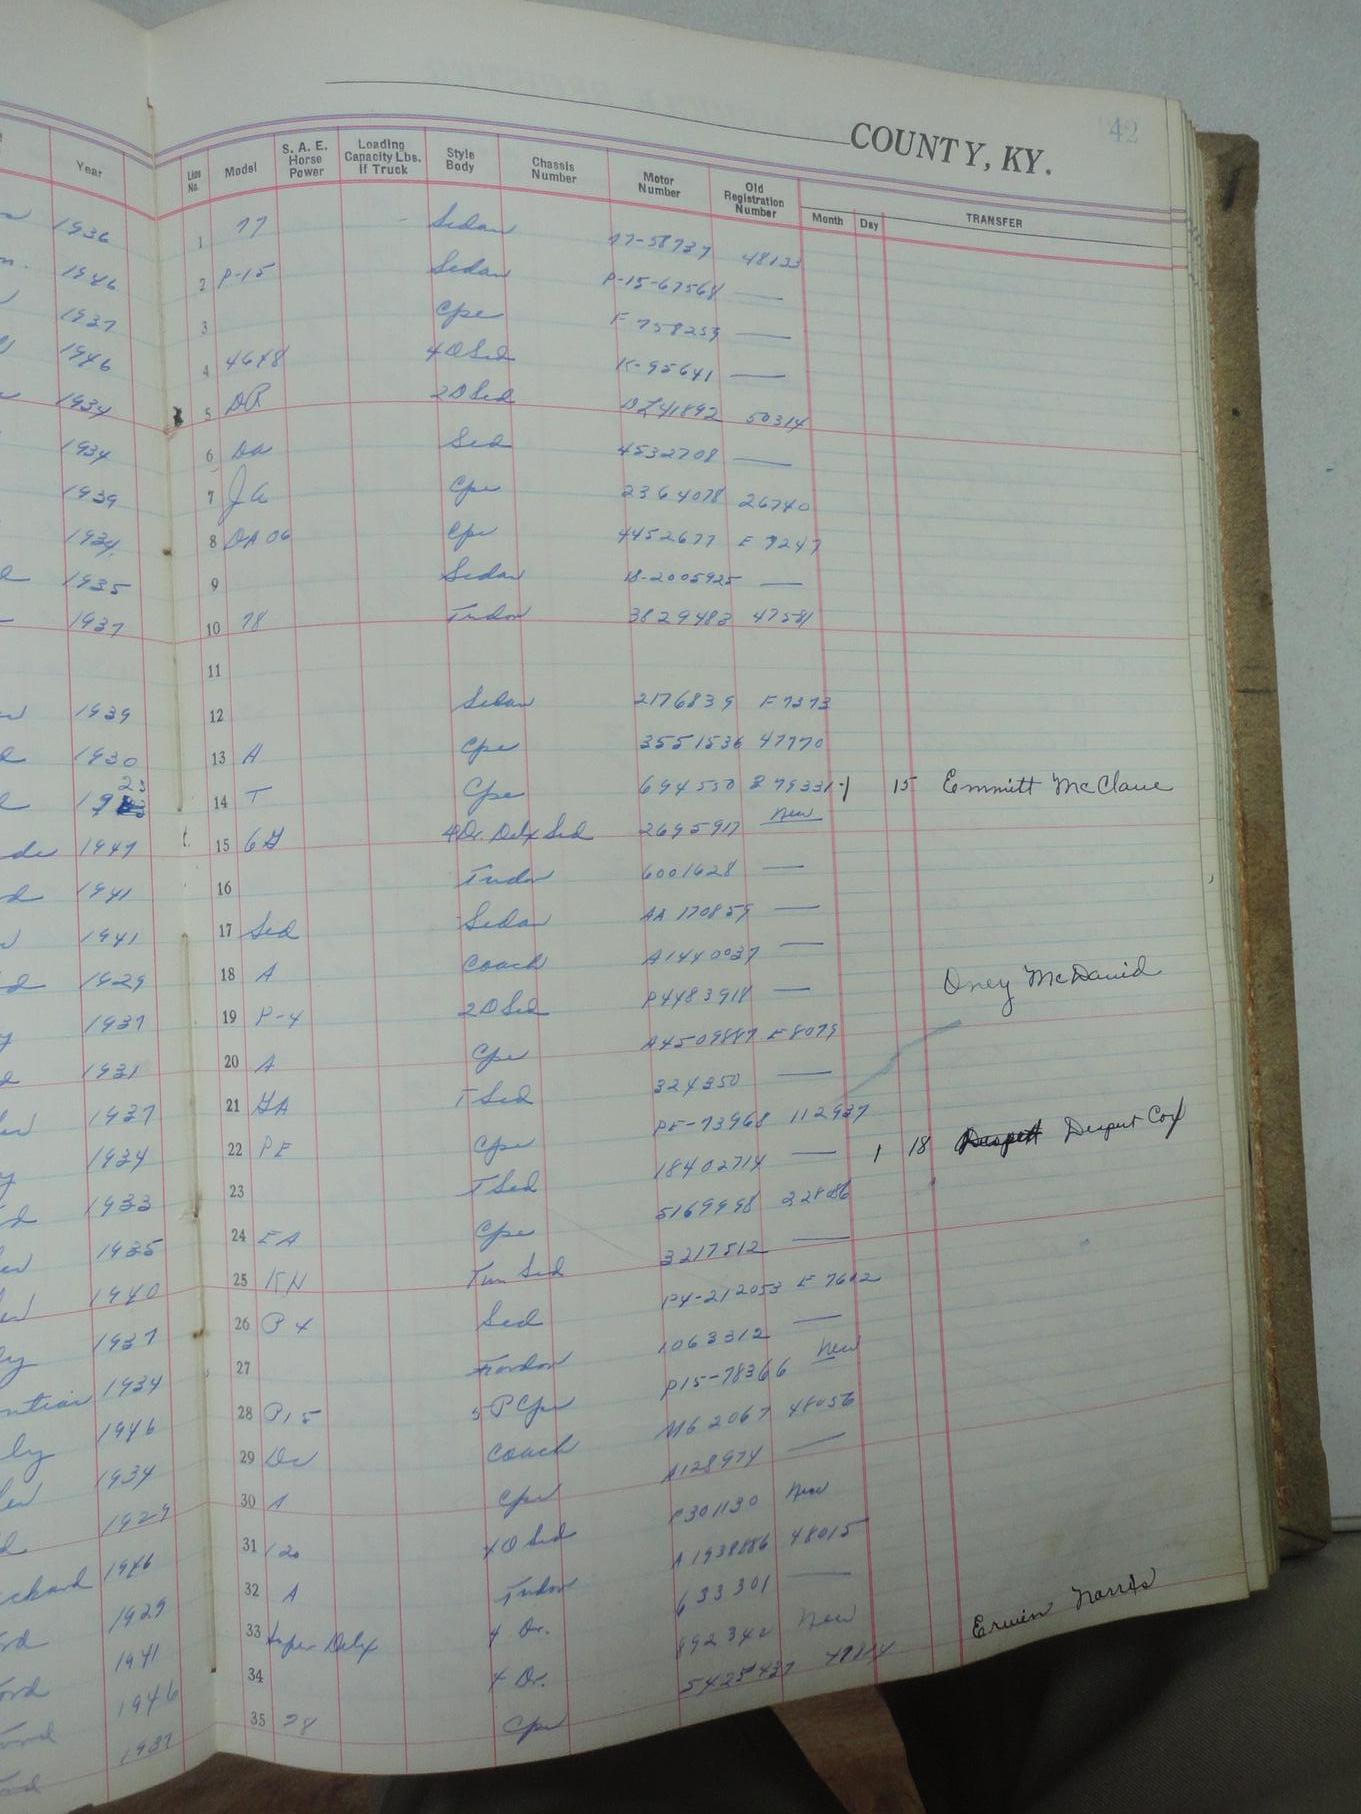 42
COUNTY, KY.
Year Line No. Model S. A. E. Horse Power Loading Capacity Lbs. If Truck Style Body Chassis Number Motor Number Old Registration Number Month Day TRANSFER
1936 1 77 Sedan 77-58737 48123
1946 2 P-15 Sedan P-15-67568 —
1937 3 Cpe F 758259 —
1946 4 4648 4D Sed K-95641 —
1934 5 DR 2D Sed DL41892 50314
1934 6 Da Sed 4532708 —
1939 7 JA Cpe 2364078 26740
1934 8 DA 06 Cpe 4452677 E 7247
1935 9 Sedan 18-2005925 —
1937 10 78 Tudor 3829483 47581
11
1939 12 Sedan 2176839 F 7373
1930 13 A Cpe 3551536 47770
1923 14 T Cpe 694550 15 Emmitt McClave
1947 15 4Dr. Delx Sed 2695917 New
1941 16 Tudor 6001628 —
1941 17 Sed Sedan AA 170859 —
1929 18 A Coach A1440037 —
1937 19 P-4 2D Sed P4483918 — Oney McDavid
1931 20 A Cpe A4509887 E8079
1937 21 GA T Sed 324350 —
1934 22 PE Cpe PE-73968 112937
1933 23 T Sed 18402714 — 1 18 Deupert Cox
1935 24 EA Cpe 5169998 228086
1940 25 KN Twn Sed 3217512 —
1937 26 P4 Sed P4-212053 E 7612
1934 27 Fordor 1063312 —
1946 28 P15 5 P Cpe P15-78366 New
1934 29 Dc Coach M62067 48056
1929 30 A Cpe A128974 —
1946 31 120 4D Sed P301130 New
1929 32 A Tudor A1938886 48015
1941 33 Super Delx 4 Dr. 633301 —
1946 34 4 Dr. 892342 New
1937 35 78 Cpe 5425437 Erwin Norris